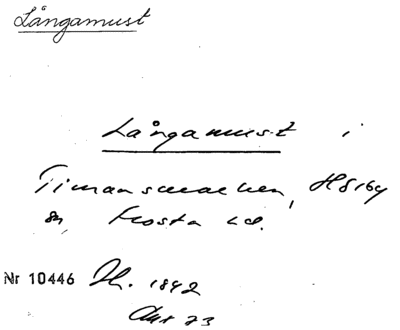 Långamust
Långamust i
Timansmacken, Hörby
sn, Frosta hd.
Nr 10446 H. 1842
Akt 73